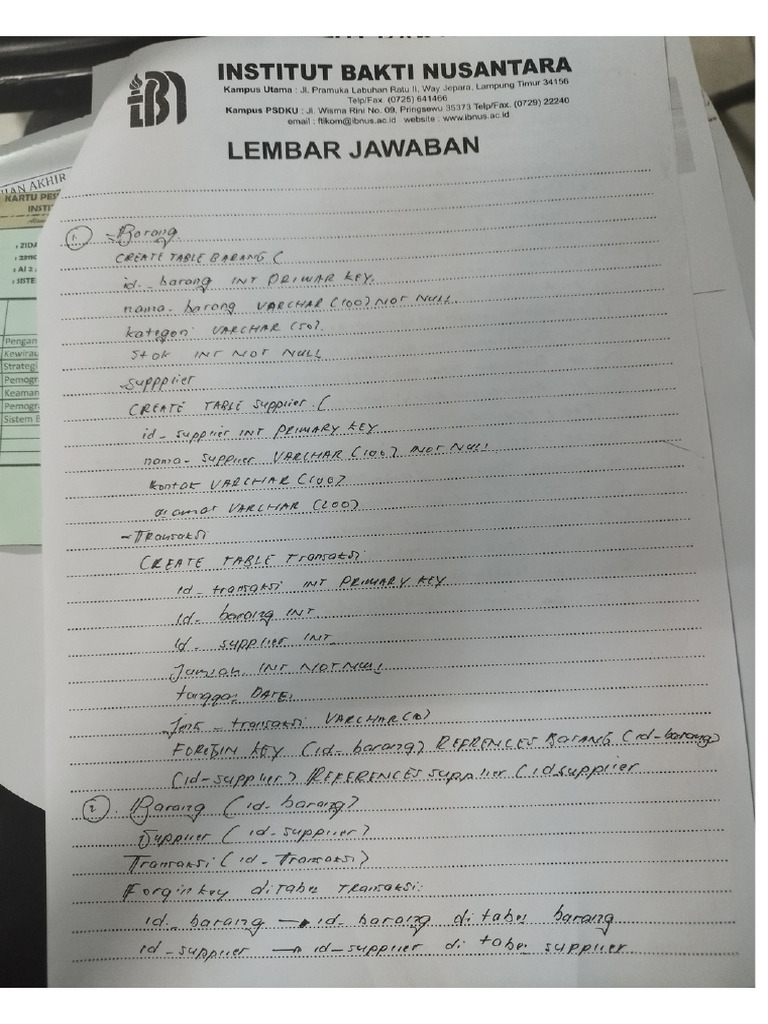 INSTITUT BAKTI NUSANTARA
Kampus Utama : Jl. Pramuka Labuhan Ratu II, Way Jepara, Lampung Timur 34156
Telp/Fax. (0725) 641466
Kampus PSDKU : Jl. Wisma Rini No. 09, Pringsewu 35373 Telp/Fax. (0729) 22240
email : ftikom@ibnus.ac.id website : www.ibnus.ac.id
LEMBAR JAWABAN
IAN AKHIR
KARTU PES
INSTI
: ZIDA
: AI 2
: SISTE
Pengan
Kewirau
Strategi
Pemogra
Keaman
Pemogra
Sistem B
1. Barang
CREATE TABLE BARANG (
id_barang INT PRIMAR KEY.
nama_barang VARCHAR (100) NOT NULL.
kategori VARCHAR (50).
Stok INT NOT NULL
Suppplier
CREATE TABLE Supplier (
id_supplier INT PRIMARY KEY
nama_supplier VARCHAR (100) NOT NULL
kontak VARCHAR (100)
alamat VARCHAR (200)
- Transaksi
CREATE TABLE Transaksi
id_transaksi INT PRIMARY KEY
id_barang INT
id_supplier INT
Jumlah INT NOT NULL
tanggal DATE,
_transaksi VARCHAR
KEY (id_barang) REFRENCES Barang (id_barang)
(id_supplier) REFERENCES supplier (idsupplier
2. Barang (id_barang)
Supplier (id_supplier)
Transaksi (id_Transaksi)
Forgin key ditabel transaksi:
id_barang → id_barang di tabel barang
id_supplier → id_supplier di tabel supplier